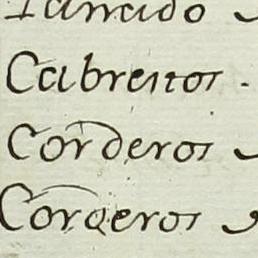 Cabreitos.
Corderos
Corqeros